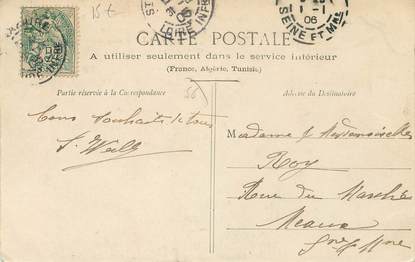 15€
1 - 1
06
SEINE ET MNE
CARTE POSTALE
A utiliser seulement dans le service intérieur
(France, Algérie, Tunisie)
Partie réservée à la Correspondance
56
Adresse du Destinataire
Bons Souhaits de tous
Madame & Mesdemoiselles
Roy
Rue du Marché
Meaux